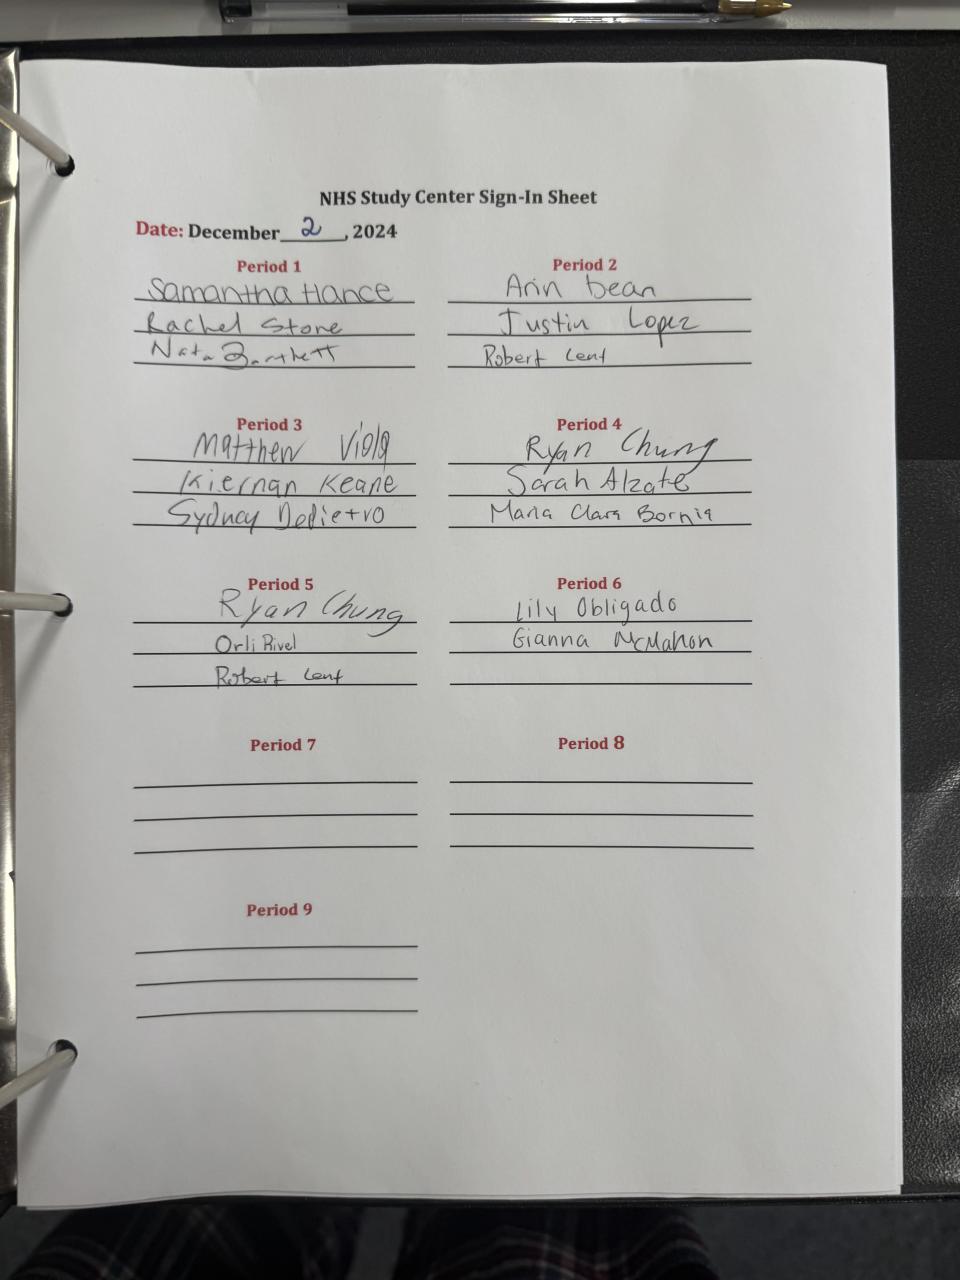 NHS Study Center Sign-In Sheet
Date: December 2, 2024
Period 1
Samantha Hance
Rachel Stone
Period 2
Arin bean
Justin Lopez
Robert Lent
Period 3
Matthew Viola
Kiernan Keane
Sydney Depietro
Period 4
Ryan Chung
Sarah Alzate
Maria Clara Bornia
Period 5
Ryan Chung
Orli Rivel
Robert Lent
Period 6
Lily Obligado
Gianna McMahon
Period 7
Period 8
Period 9